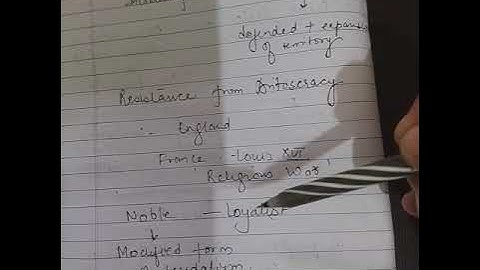 defended + expans
of territory
Resistance from Aristocracy
∴ England
France - Louis XVI
'Religious War'
Noble — Loyalist
↓
Modified form
feudalism